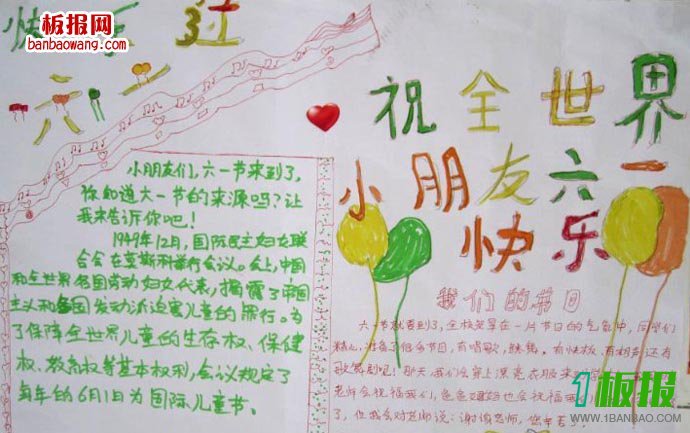 快乐过
六一
板报网
banbaowang.com
祝全世界
小朋友六一
快乐
小朋友们,六一节来到了,
你知道六一节的来源吗?让
我来告诉你吧!
1949年12月,国际民主妇女联
合会在莫斯科举行会议。会上,中国
和全世界各国劳动妇女代表,揭露了帝国
主义和各国反动派迫害儿童的罪行。为
了保障全世界儿童的生存权、保健
权、教育权等基本权利,会议规定了
每年的6月1日为国际儿童节。
我们的节日
六一节就要到了,全校笼罩在一片节日的气氛中,同学们
精心准备了很多节目,有唱歌,跳舞。有快板、有相声还有
歌舞剧呢!那天我们会穿上漂亮衣服来
老师会祝福我们,爸爸妈妈也会祝福我们
了,但我会对老师说:谢谢老师,您辛苦了。
1板报
WWW.1BANBAO.COM